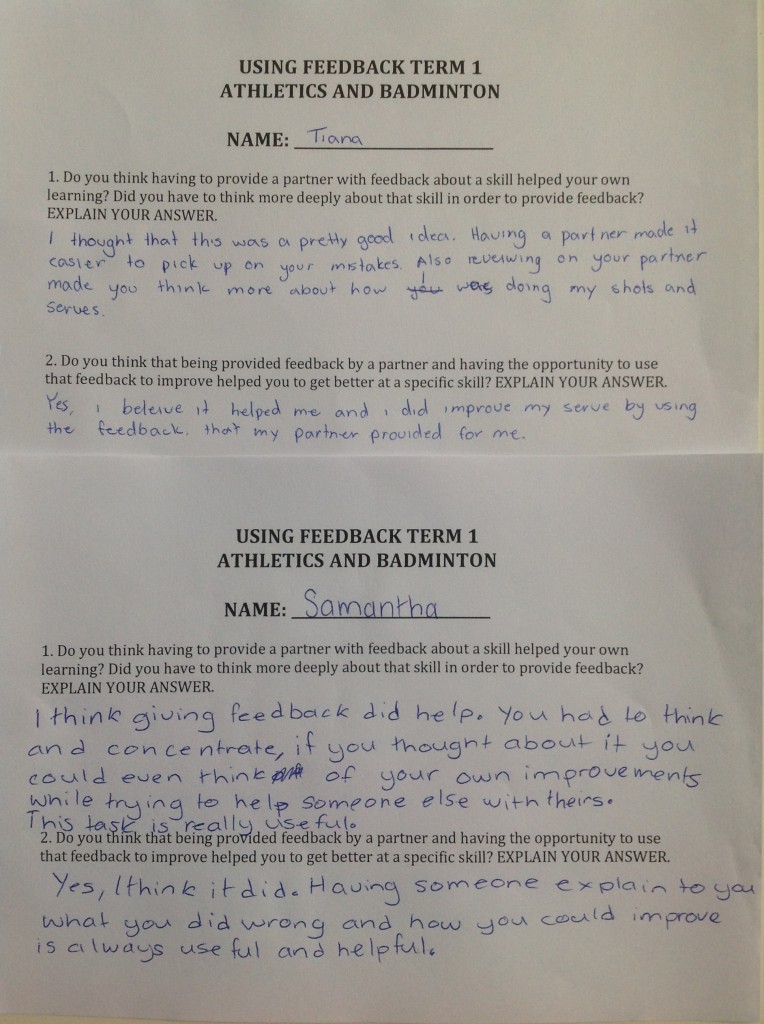 USING FEEDBACK TERM 1
ATHLETICS AND BADMINTON
NAME: Tiana
1. Do you think having to provide a partner with feedback about a skill helped your own
learning? Did you have to think more deeply about that skill in order to provide feedback?
EXPLAIN YOUR ANSWER.
I thought that this was a pretty good idea. Having a partner made it
easier to pick up on your mistakes. Also reveiwing on your partner
made you think more about how I was doing my shots and
serves.
2. Do you think that being provided feedback by a partner and having the opportunity to use
that feedback to improve helped you to get better at a specific skill? EXPLAIN YOUR ANSWER.
Yes, i beleive it helped me and i did improve my serve by using
the feedback. that my partner provided for me.
USING FEEDBACK TERM 1
ATHLETICS AND BADMINTON
NAME: Samantha
1. Do you think having to provide a partner with feedback about a skill helped your own
learning? Did you have to think more deeply about that skill in order to provide feedback?
EXPLAIN YOUR ANSWER.
I think giving feedback did help. You had to think
and concentrate, if you thought about it you
could even think of your own improvements
while trying to help someone else with theirs.
This task is really useful.
2. Do you think that being provided feedback by a partner and having the opportunity to use
that feedback to improve helped you to get better at a specific skill? EXPLAIN YOUR ANSWER.
Yes, I think it did. Having someone explain to you
what you did wrong and how you could improve
is always useful and helpful.